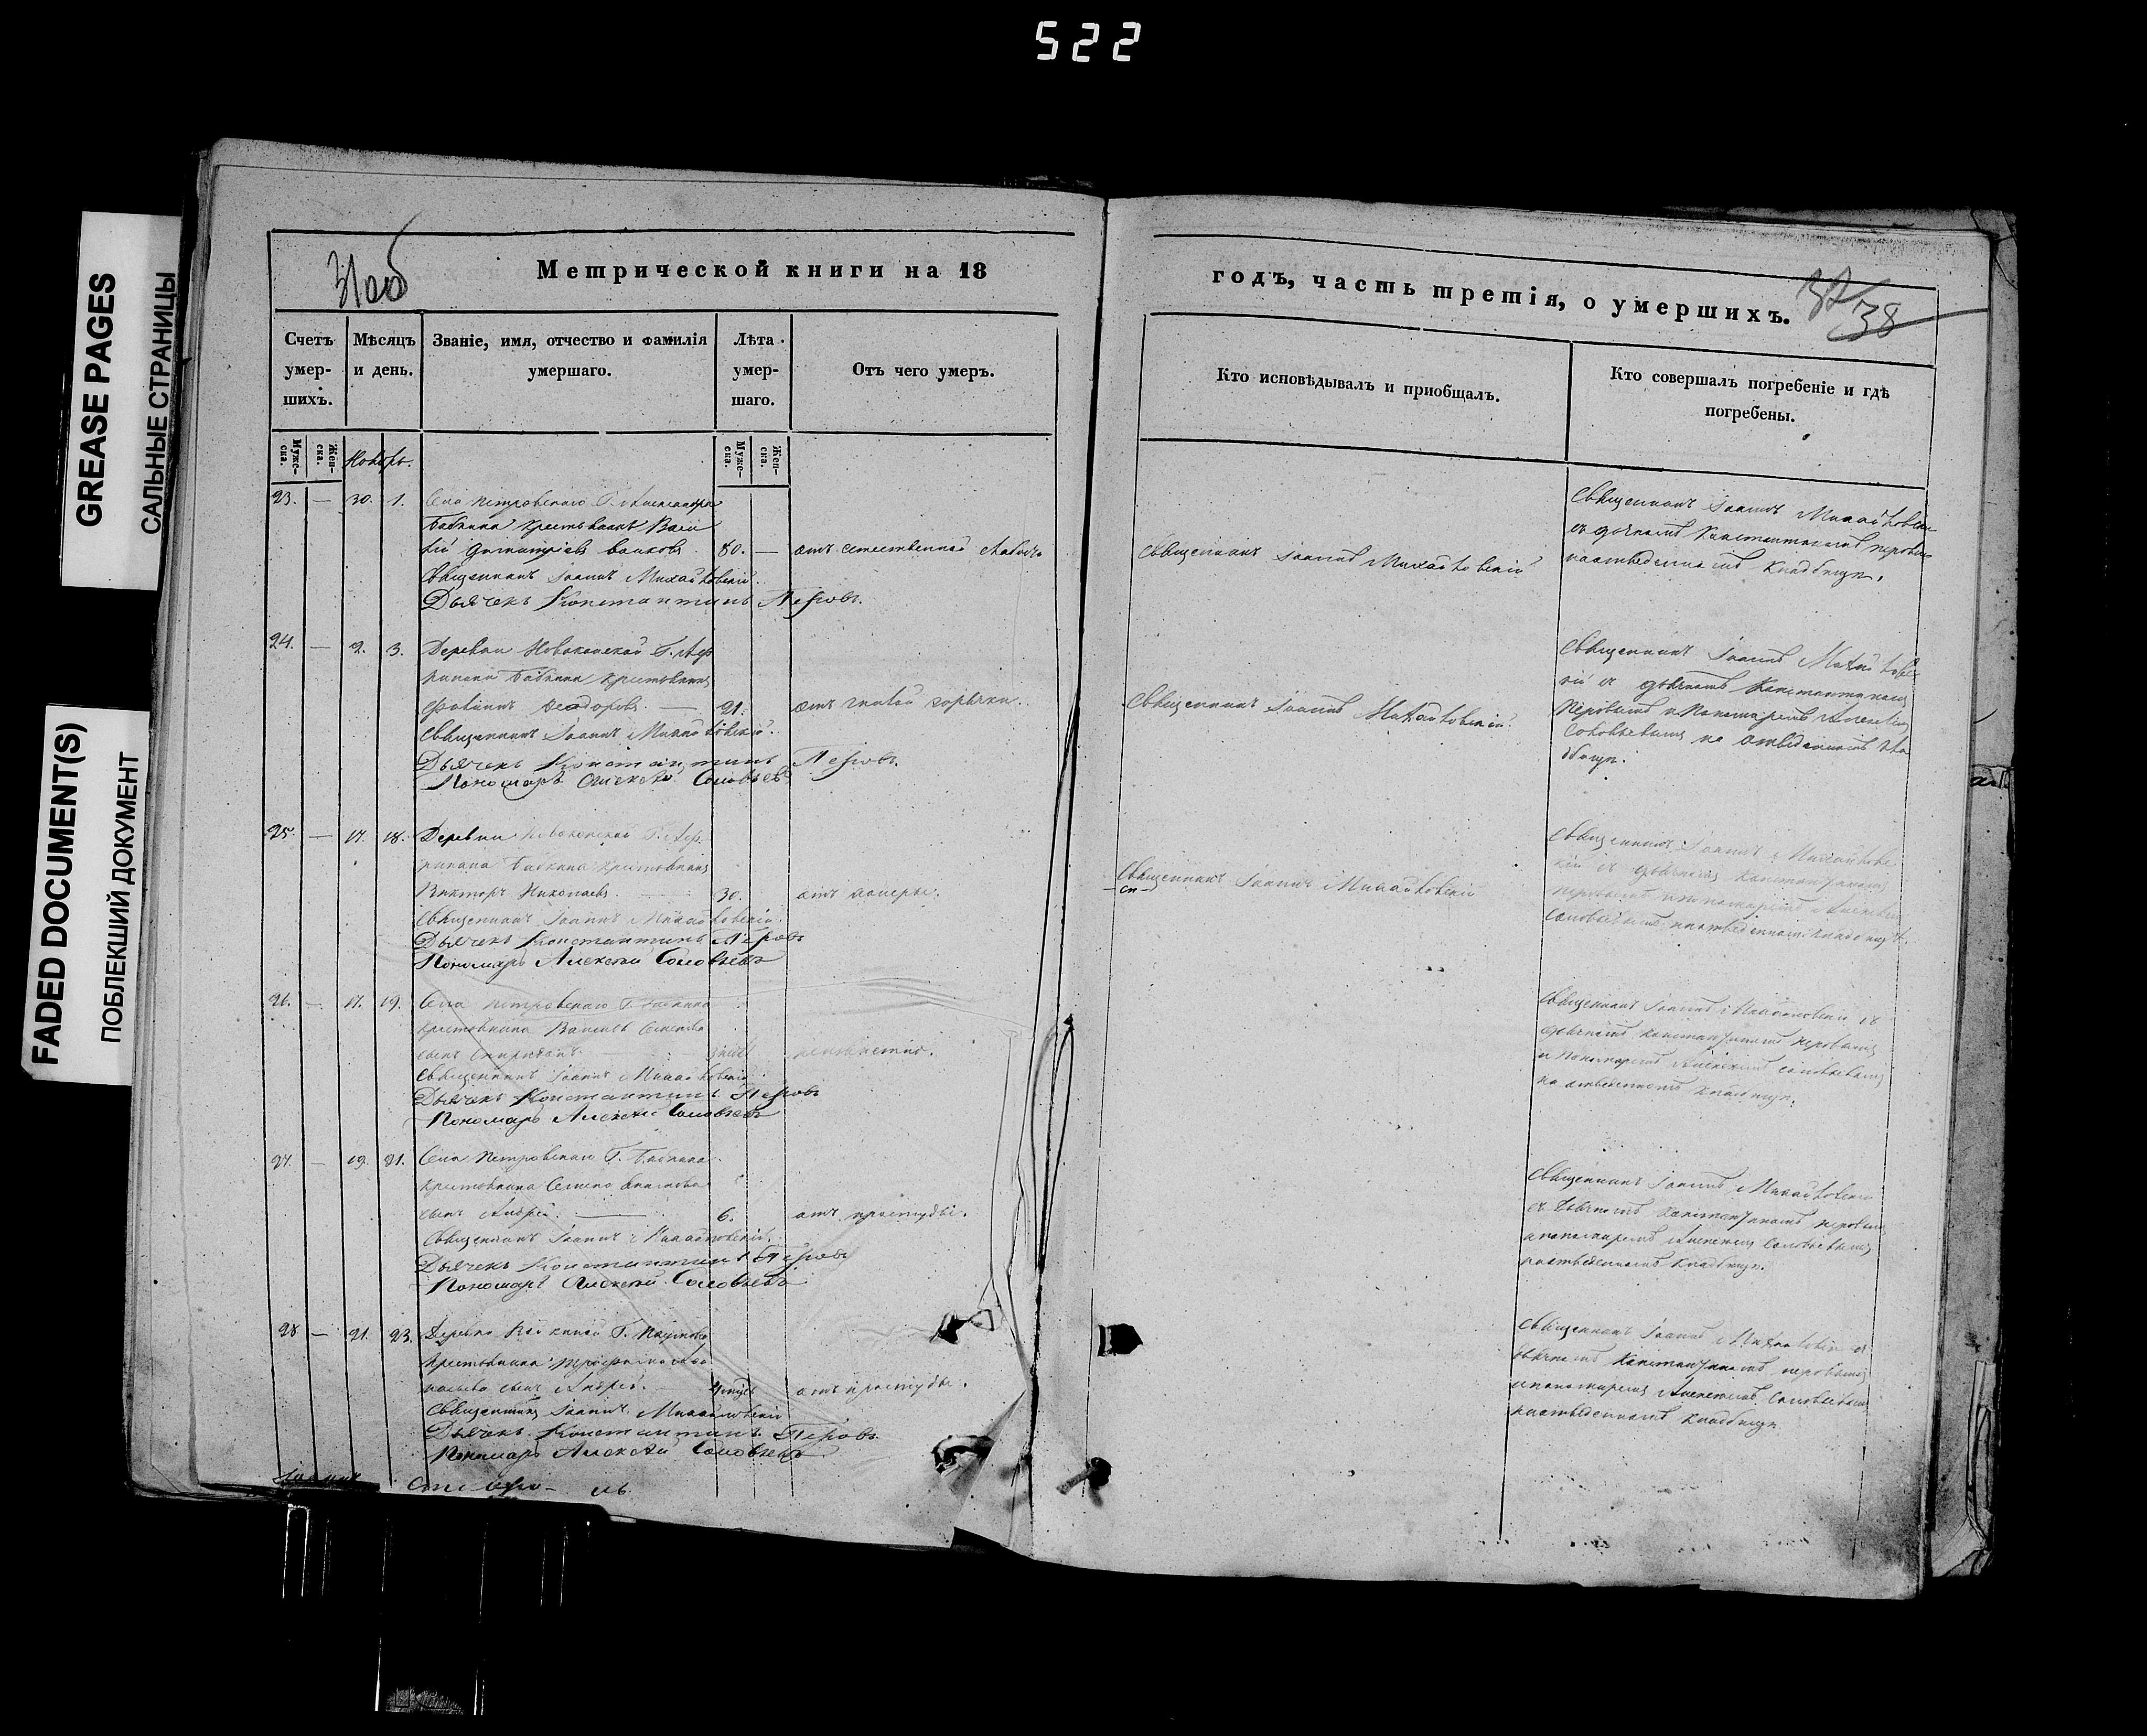 522
GREASE PAGES
САЛЬНЫЕ СТРАНИЦЫ
FADED DOCUMENT(S)
ПОБЛЕКШИЙ ДОКУМЕНТ
31об
Метрической книги на 18
Счетъ умер-шихъ.
Мѣсяцъ и день.
Званіе, имя, отчество и фамилія умершаго.
Лѣта умер-шаго.
Отъ чего умеръ.
Муже-ска.
Жен-ска.
Ноябрь.
Муже-ска.
Жен-ска.
23. — 30. 1. Села Петровскаго Г. Александра
Бабкина крестьянинъ Васи
лій Димитріевъ 80. — отъ естественной
Священникъ Іоаннъ Михайловскій.
Дьячекъ Константинъ Перовъ.
24. — 2. 3. Деревни Г.
Бабкина крестьянинъ
Ѳеодоровъ. — 21. отъ горячки.
Священникъ Іоаннъ Михайловскій.
Дьячекъ Константинъ Перовъ.
Пономарь Алексѣй Соловьевъ
25. — 17. 18. Деревни Г.
Бабкина крестьянинъ
Викторъ Николаевъ. 30. отъ холеры.
Священникъ Іоаннъ Михайловскій.
Дьячекъ Константинъ Перовъ
Пономарь Алексѣй Соловьевъ
26. — 17. 19. Села Петровскаго Г. Бабкина
крестьянина
сынъ Спиридонъ. неизвѣстно.
Священникъ Іоаннъ Михайловскій
Дьячекъ Константинъ Перовъ
Пономарь Алексѣй Соловьевъ
27. — 19. 21. Села Петровскаго Г. Бабкина
крестьянина Семена
сынъ Андрей. — 6. отъ простуды.
Священникъ Іоаннъ Михайловскій.
Дьячекъ Константинъ Перовъ
Пономарь Алексѣй Соловьевъ
28 — 21. 23. Г.
крестьянина
сынъ Андрей. — отъ простуды.
Священникъ Іоаннъ Михайловскій
Дьячекъ Константинъ Перовъ
Пономарь Алексѣй Соловьевъ
годъ, часть третія, о умершихъ.
32
38
Кто исповѣдывалъ и приобщалъ.
Кто совершалъ погребеніе и гдѣ погребены.
Священникъ Іоаннъ Михайловскій
Священникъ Іоаннъ Михайловскій
съ дьячкомъ Константиномъ Перовымъ
на отведенномъ кладбищѣ.
Священникъ Іоаннъ Михайловскій.
Священникъ Іоаннъ Михайловс
кій съ дьячкомъ Константиномъ
Перовымъ и Пономаремъ Алексѣемъ
Соловьевымъ на отведенномъ кла
дбищѣ.
Священникъ Іоаннъ Михайловскій
Священникъ Іоаннъ Михайловс
кій съ дьячкомъ Константиномъ
Перовымъ и пономаремъ Алексѣемъ
Соловьевымъ на отведенномъ кладбищѣ.
Священникъ Іоаннъ Михайловскій съ
дьячкомъ Константиномъ Перовымъ
и Пономаремъ Алексѣемъ Соловьевымъ
на отведенномъ кладбищѣ.
Священникъ Іоаннъ Михайловскій
съ дьячкомъ Константиномъ Перовымъ
и пономаремъ Алексѣемъ Соловьевымъ
на отведенномъ кладбищѣ.
Священникъ Іоаннъ Михайловскій съ
дьячкомъ Константиномъ Перовымъ
и пономаремъ Алексѣемъ Соловьевымъ
на отведенномъ кладбищѣ